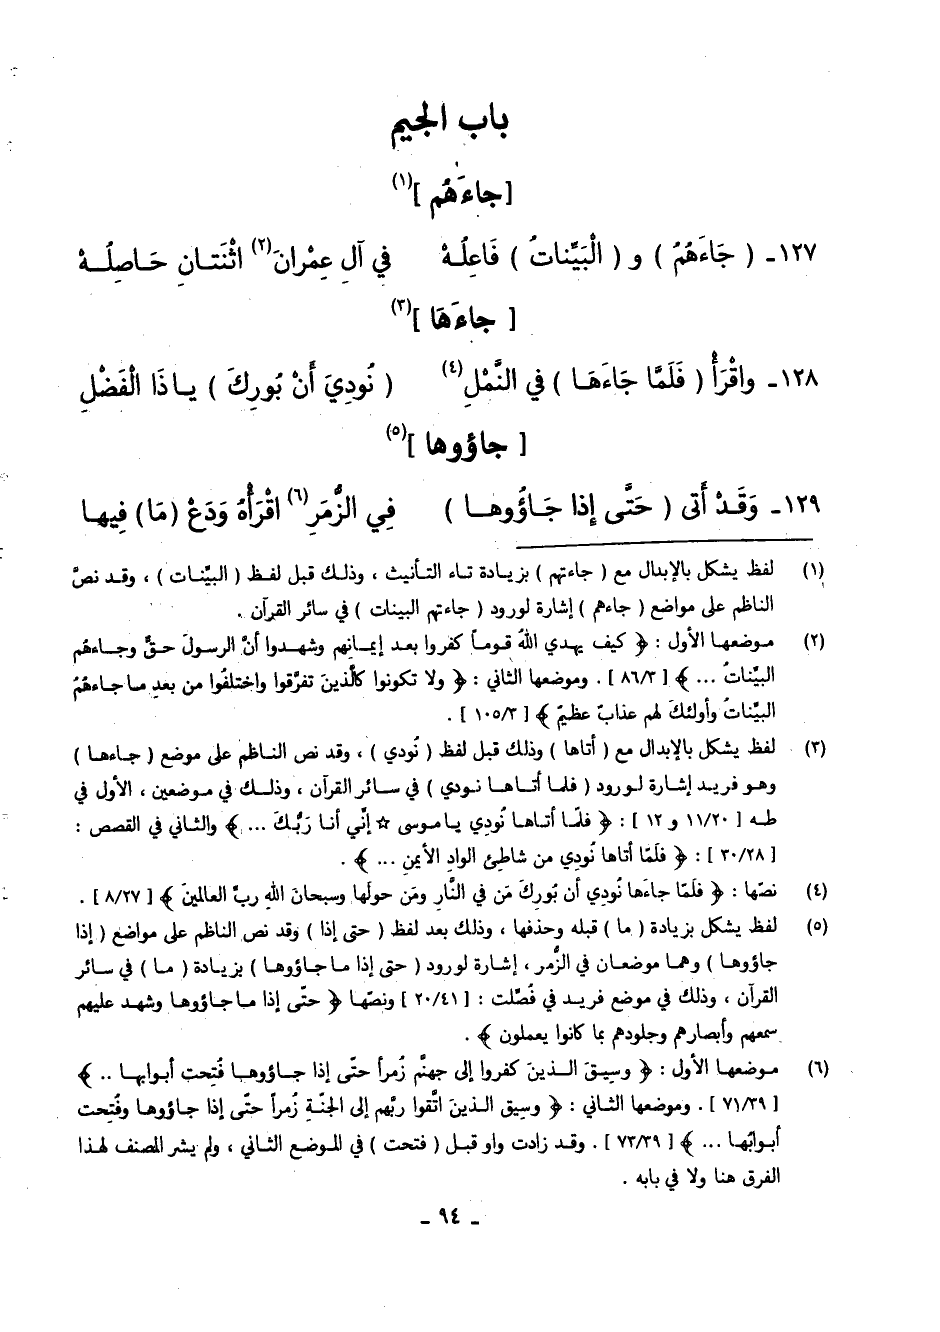 باب الجيم
[ جاءَهُم ](١)
١٢٧ـ ( جَاءَهُمُ ) و ( الْبَيِّناتُ ) فَاعِلُهْ في آلِ عِمْرانَ(٢) اثْنَتانِ حَاصِلُهْ
[ جاءَهَا ](٣)
١٢٨ـ واقْرَأْ ( فَلَمَّا جَاءَهَا ) في النَّمْلِ(٤) ( نُودِيَ أَنْ بُورِكَ ) يا ذَا الْفَضْلِ
[ جاؤوها ](٥)
١٢٩ـ وَقَدْ أَتى ( حَتَّى إذا جَاؤُوها ) فِي الزُّمَرِ(٦) اقْرَأْهُ وَدَعْ (مَا) فِيها
(١) لفظ يشكل بالإبدال مع ( جاءتهم ) بزيادة تاء التأنيث ، وذلك قبل لفظ ( البيِّنات ) ، وقد نصَّ
الناظم على مواضع ( جاءهم ) إشارة لورود ( جاءتهم البينات ) في سائر القرآن .
(٢) موضعها الأول : ﴿ كيف يهدي اللهُ قوماً كفروا بعد إيمانهم وشهدوا أنَّ الرسولَ حقٌّ وجاءهم
البيِّناتُ ... ﴾ [ ٨٦/٣ ] . وموضعها الثاني : ﴿ ولا تكونوا كالَّذينَ تفرَّقوا واختلفُوا من بعدِ ما جاءهمُ
البيِّناتُ وأولئكَ لهم عذابٌ عظيمٌ ﴾ [ ١٠٥/٣ ] .
(٣) لفظ يشكل بالإبدال مع ( أتاها ) وذلك قبل لفظ ( نُودي ) ، وقد نص الناظم على موضع ( جاءها )
وهو فريد إشارة لورود ( فلما أتاها نودي ) في سائر القرآن ، وذلك في موضعين ، الأول في
طه [ ١١/٢٠ و ١٢ ] : ﴿ فلمّا أتاها نُودي يا موسى ☆ إنّي أنا ربُّكَ ... ﴾ والثاني في القصص :
[ ٣٠/٢٨ ] : ﴿ فلَمّا أتاها نُودي من شاطئِ الوادِ الأيمنِ ... ﴾ .
(٤) نصّها : ﴿ فلمّا جاءَها نُودي أن بُوركَ مَن في النَّارِ ومَن حولَها وسبحانَ اللهِ ربِّ العالمينَ ﴾ [ ٨/٢٧ ] .
(٥) لفظ يشكل بزيادة ( ما ) قبله وحذفها ، وذلك بعد لفظ ( حتى إذا ) وقد نص الناظم على مواضع ( إذا
جاؤوها ) وهما موضعان في الزُّمر ، إشارة لورود ( حتى إذا ما جاؤوها ) بزيادة ( ما ) في سائر
القرآن ، وذلك في موضع فريد في فُصِّلت : [ ٢٠/٤١ ] ونصّها ﴿ حتَّى إذا ما جاؤوها وشهد عليهم
سمعهم وأبصارهم وجلودهم بما كانوا يعملون ﴾ .
(٦) موضعها الأول : ﴿ وسِيقَ الذينَ كفروا إلى جهنَّم زُمراً حتَّى إذا جاؤوها فُتِحت أبوابها .. ﴾
[ ٧١/٣٩ ] . وموضعها الثاني : ﴿ وسيق الذينَ اتَّقوا ربَّهم إلى الجنّةِ زُمراً حتَّى إذا جاؤوها وفُتحت
أبوابُها ... ﴾ [ ٧٣/٣٩ ] . وقد زادت واو قبل ( فتحت ) في الموضع الثاني ، ولم يشر المصنف لهذا
الفرق هنا ولا في بابه .
ـ ٩٤ ـ